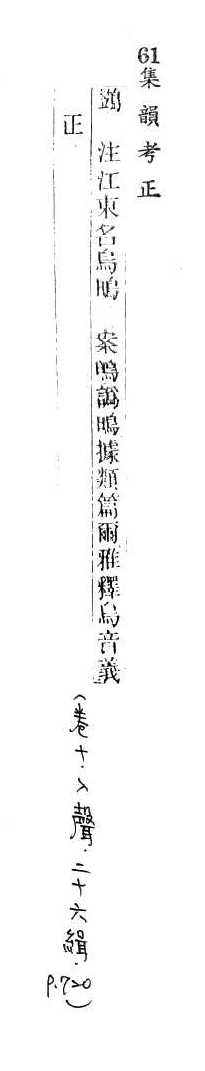 61集韻考正
注江東名烏 案 譌 據類篇爾雅釋鳥音義
正
(卷十·入聲·二十六緝·P.720)